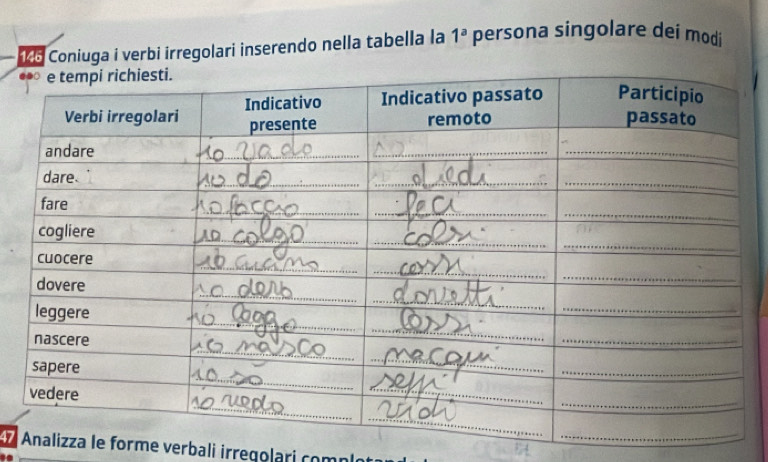 146 Coniuga i verbi irregolari inserendo nella tabella la 1ª persona singolare dei modi
e tempi richiesti.
Verbi irregolari Indicativo presente Indicativo passato remoto Participio passato
andare io vado io
dare io do diedi
fare io faccio feci
cogliere io colgo colsi
cuocere io cossi
dovere io devo dovetti
leggere io leggo lessi
nascere io nasco nacqui
sapere io so seppi
vedere io vedo vidi
47 Analizza le forme verbali irregolari